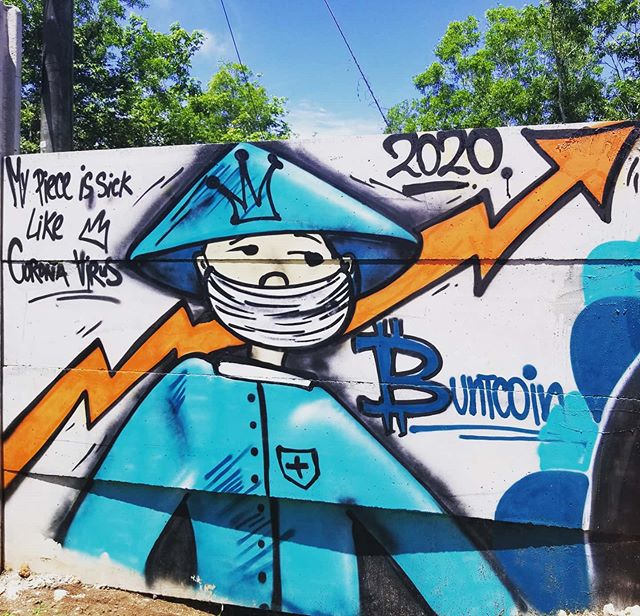 My Piece is Sick
Like
Corona Virus
2020
Buntcoin